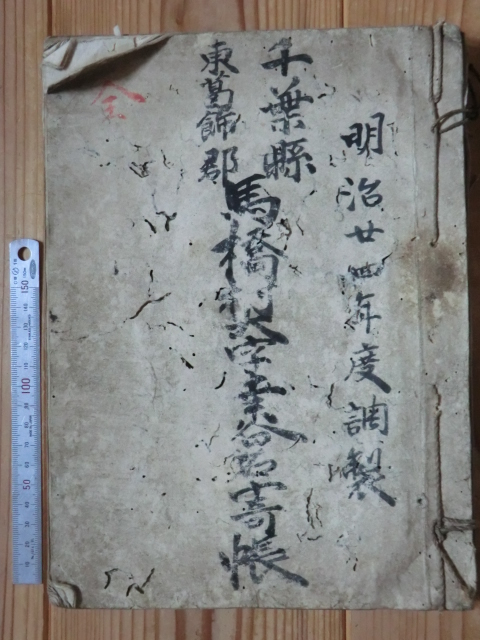 明治廿四年度調製
千葉縣
東葛飾郡
馬橋村大字幸谷名寄帳
全
50
100
150